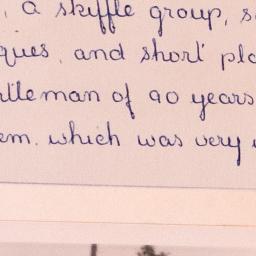 , a skiffle group, s
ques, and short pla
ntleman of 90 years
em. which was very